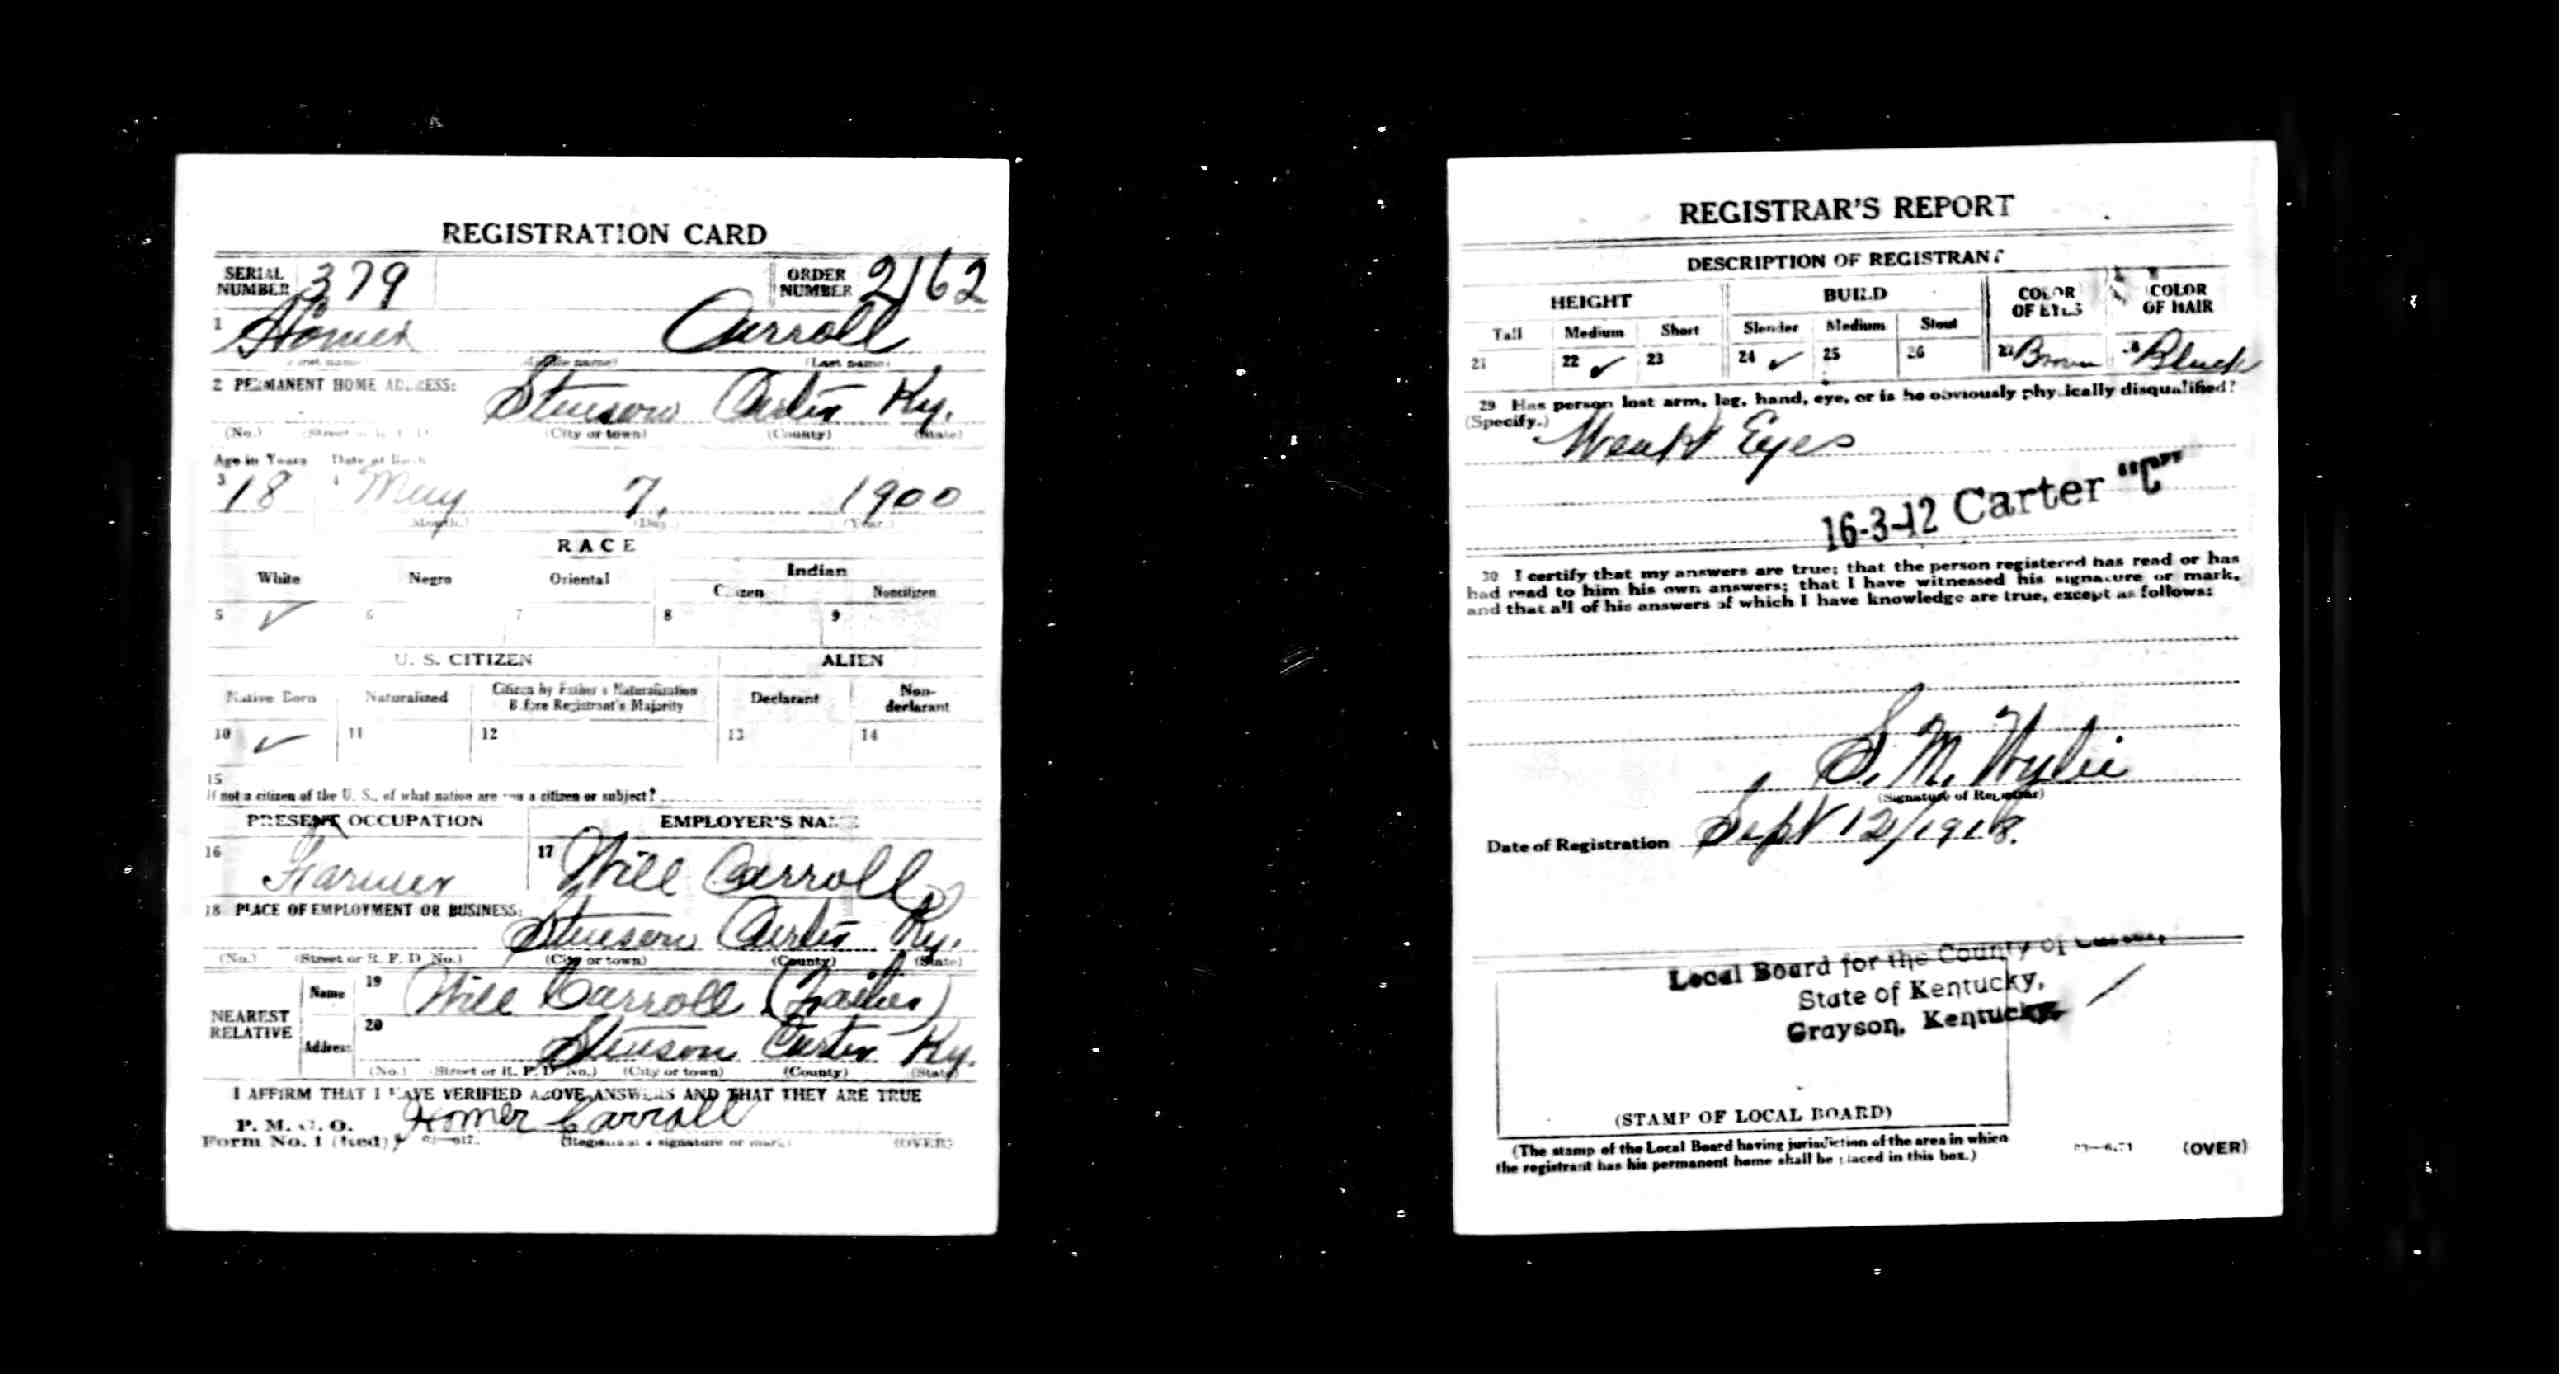 REGISTRATION CARD
SERIAL NUMBER 379 ORDER NUMBER 2162
1 Homer Carroll
(Last name)
2 PERMANENT HOME ADDRESS:
Stinson Carter Ky.
(No.) (City or town) (County) (State)
Age in Years Date of Birth
3 18 4 May 7, 1900
(Month.) (Day.) (Year.)
RACE
White Negro Oriental Indian
Citizen Noncitizen
5 ✓ 6 7 8 9
U. S. CITIZEN ALIEN
Native Born Naturalized Citizen by Father's Naturalization Before Registrant's Majority Declarant Non-declarant
10 ✓ 11 12 13 14
15
If not a citizen of the U. S., of what nation are you a citizen or subject?
PRESENT OCCUPATION EMPLOYER'S NAME
16 Farmer 17 Will Carroll
18 PLACE OF EMPLOYMENT OR BUSINESS:
Stinson Carter Ky.
(No.) (Street or R. F. D. No.) (City or town) (County) (State)
NEAREST RELATIVE
Name 19 Will Carroll (Father)
Address 20 Stinson Carter Ky.
(No.) (Street or R. F. D. No.) (City or town) (County) (State)
I AFFIRM THAT I HAVE VERIFIED ABOVE ANSWERS AND THAT THEY ARE TRUE
P. M. G. O.
Form No. 1 (Red) Homer Carroll
(Registrant's signature or mark) (OVER)
REGISTRAR'S REPORT
DESCRIPTION OF REGISTRANT
HEIGHT BUILD COLOR OF EYES COLOR OF HAIR
Tall Medium Short Slender Medium Stout
21 22 ✓ 23 24 ✓ 25 26 27 Brown 28 Black
29 Has person lost arm, leg, hand, eye, or is he obviously physically disqualified?
(Specify.) Weak Eyes
16-3-12 Carter "C"
30 I certify that my answers are true; that the person registered has read or has
had read to him his own answers; that I have witnessed his signature or mark,
and that all of his answers of which I have knowledge are true, except as follows:
S. M. Wylie
(Signature of Registrar)
Date of Registration Sept 12/1918.
Local Board for the County of Carter,
State of Kentucky,
Grayson, Kentucky.
(STAMP OF LOCAL BOARD)
(The stamp of the Local Board having jurisdiction of the area in which
the registrant has his permanent home shall be placed in this box.)
(OVER)